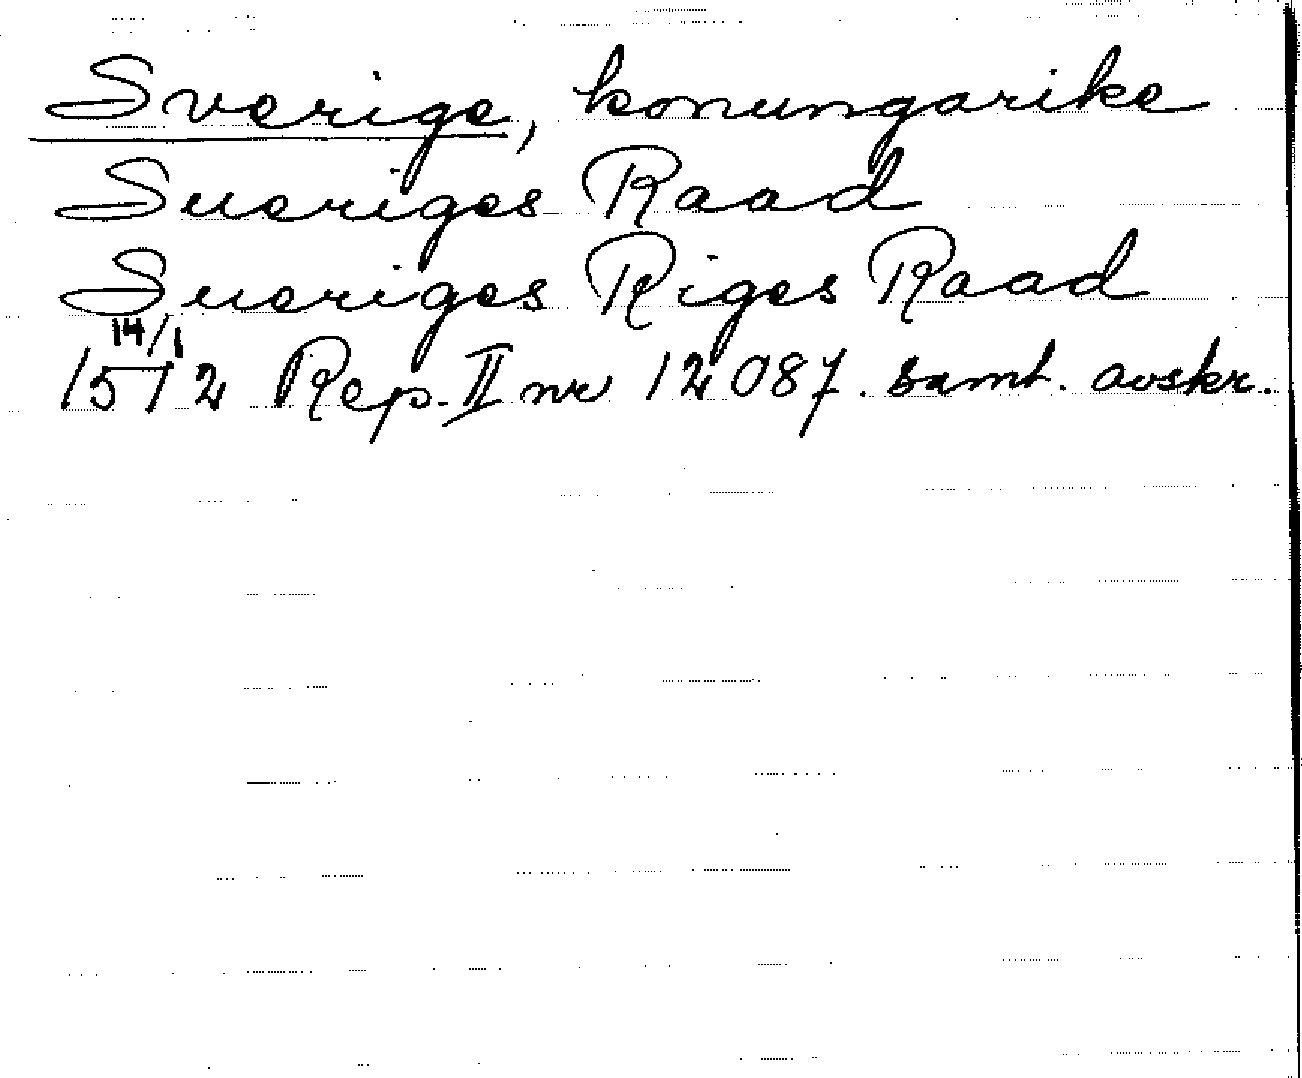 Sverige, konungarike
Sueriges Raad
Sueriges Riges Raad
14/1
1512 Rep. II nr 12087. samt. avskr.